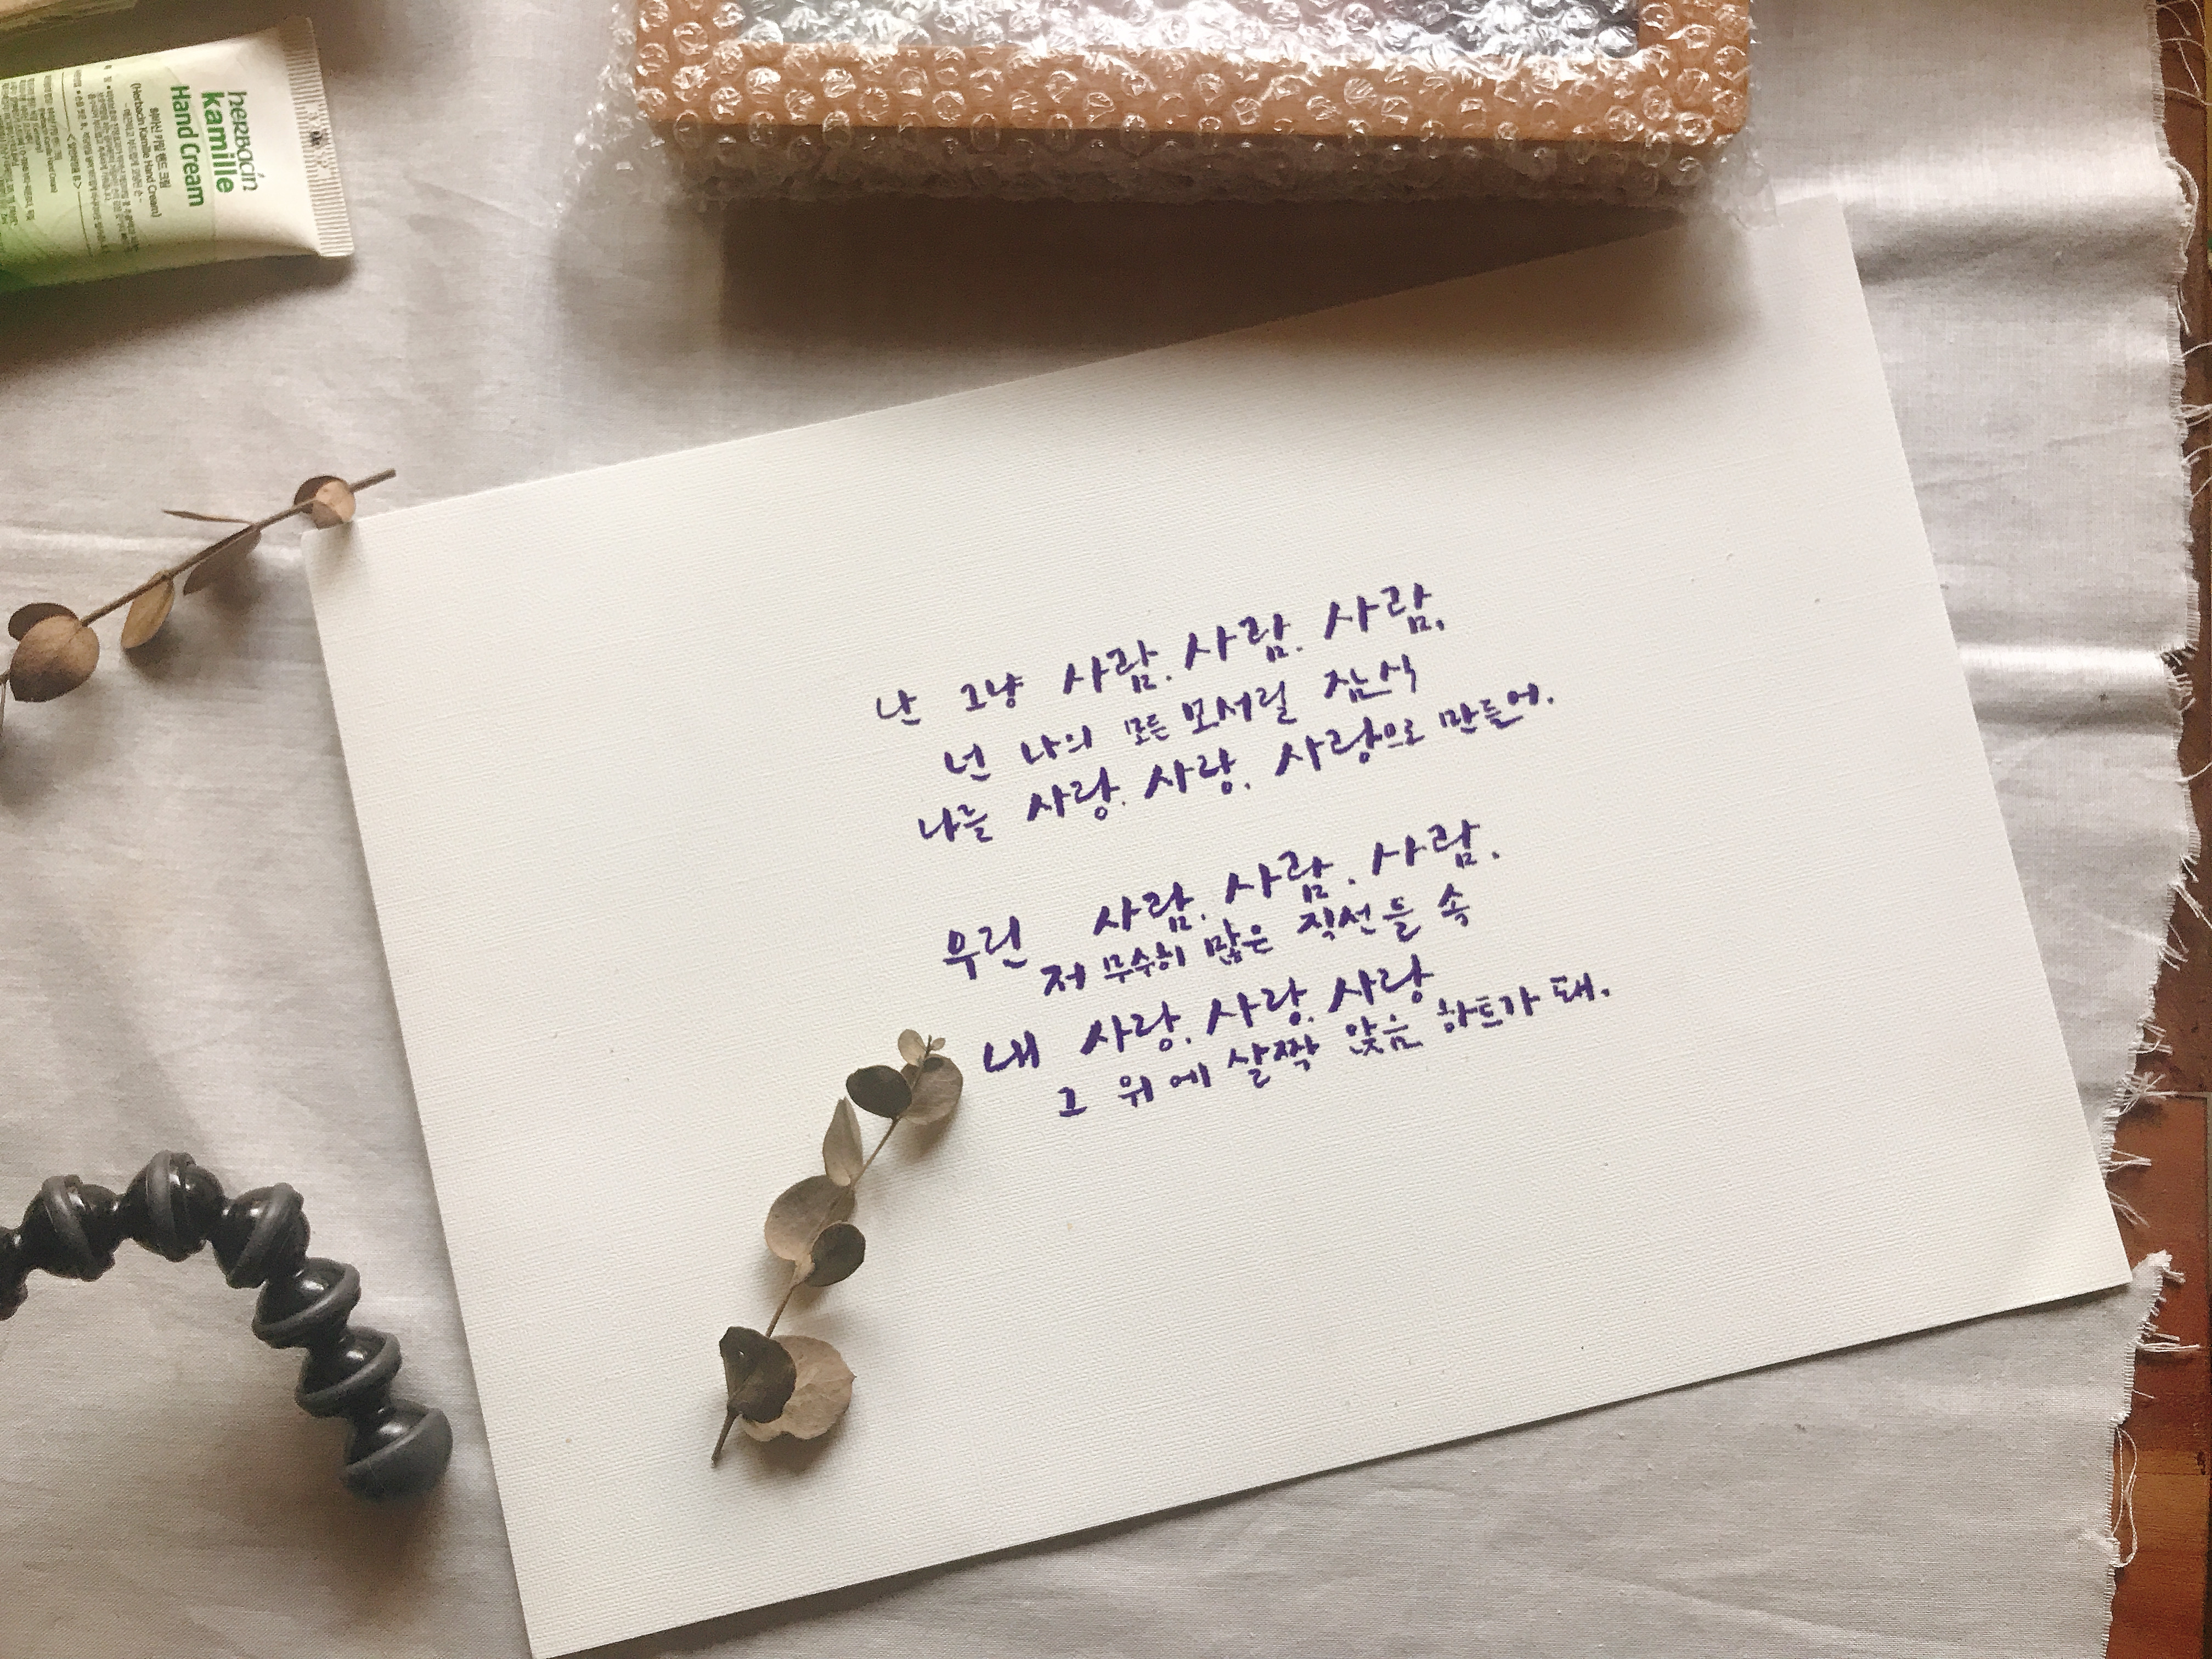 herbacin
kamille
Hand Cream
허바신 카밀 핸드 크림
(Herbacin Kamille Hand Cream)
난 그냥 사람. 사람. 사람.
넌 나의 모든 모서릴 잠식
나를 사랑. 사랑. 사랑으로 만들어.
우린 사람. 사람. 사람.
저 무수히 많은 직선들 속
내 사랑. 사랑. 사랑
그 위에 살짝 앉음 하트가 돼.